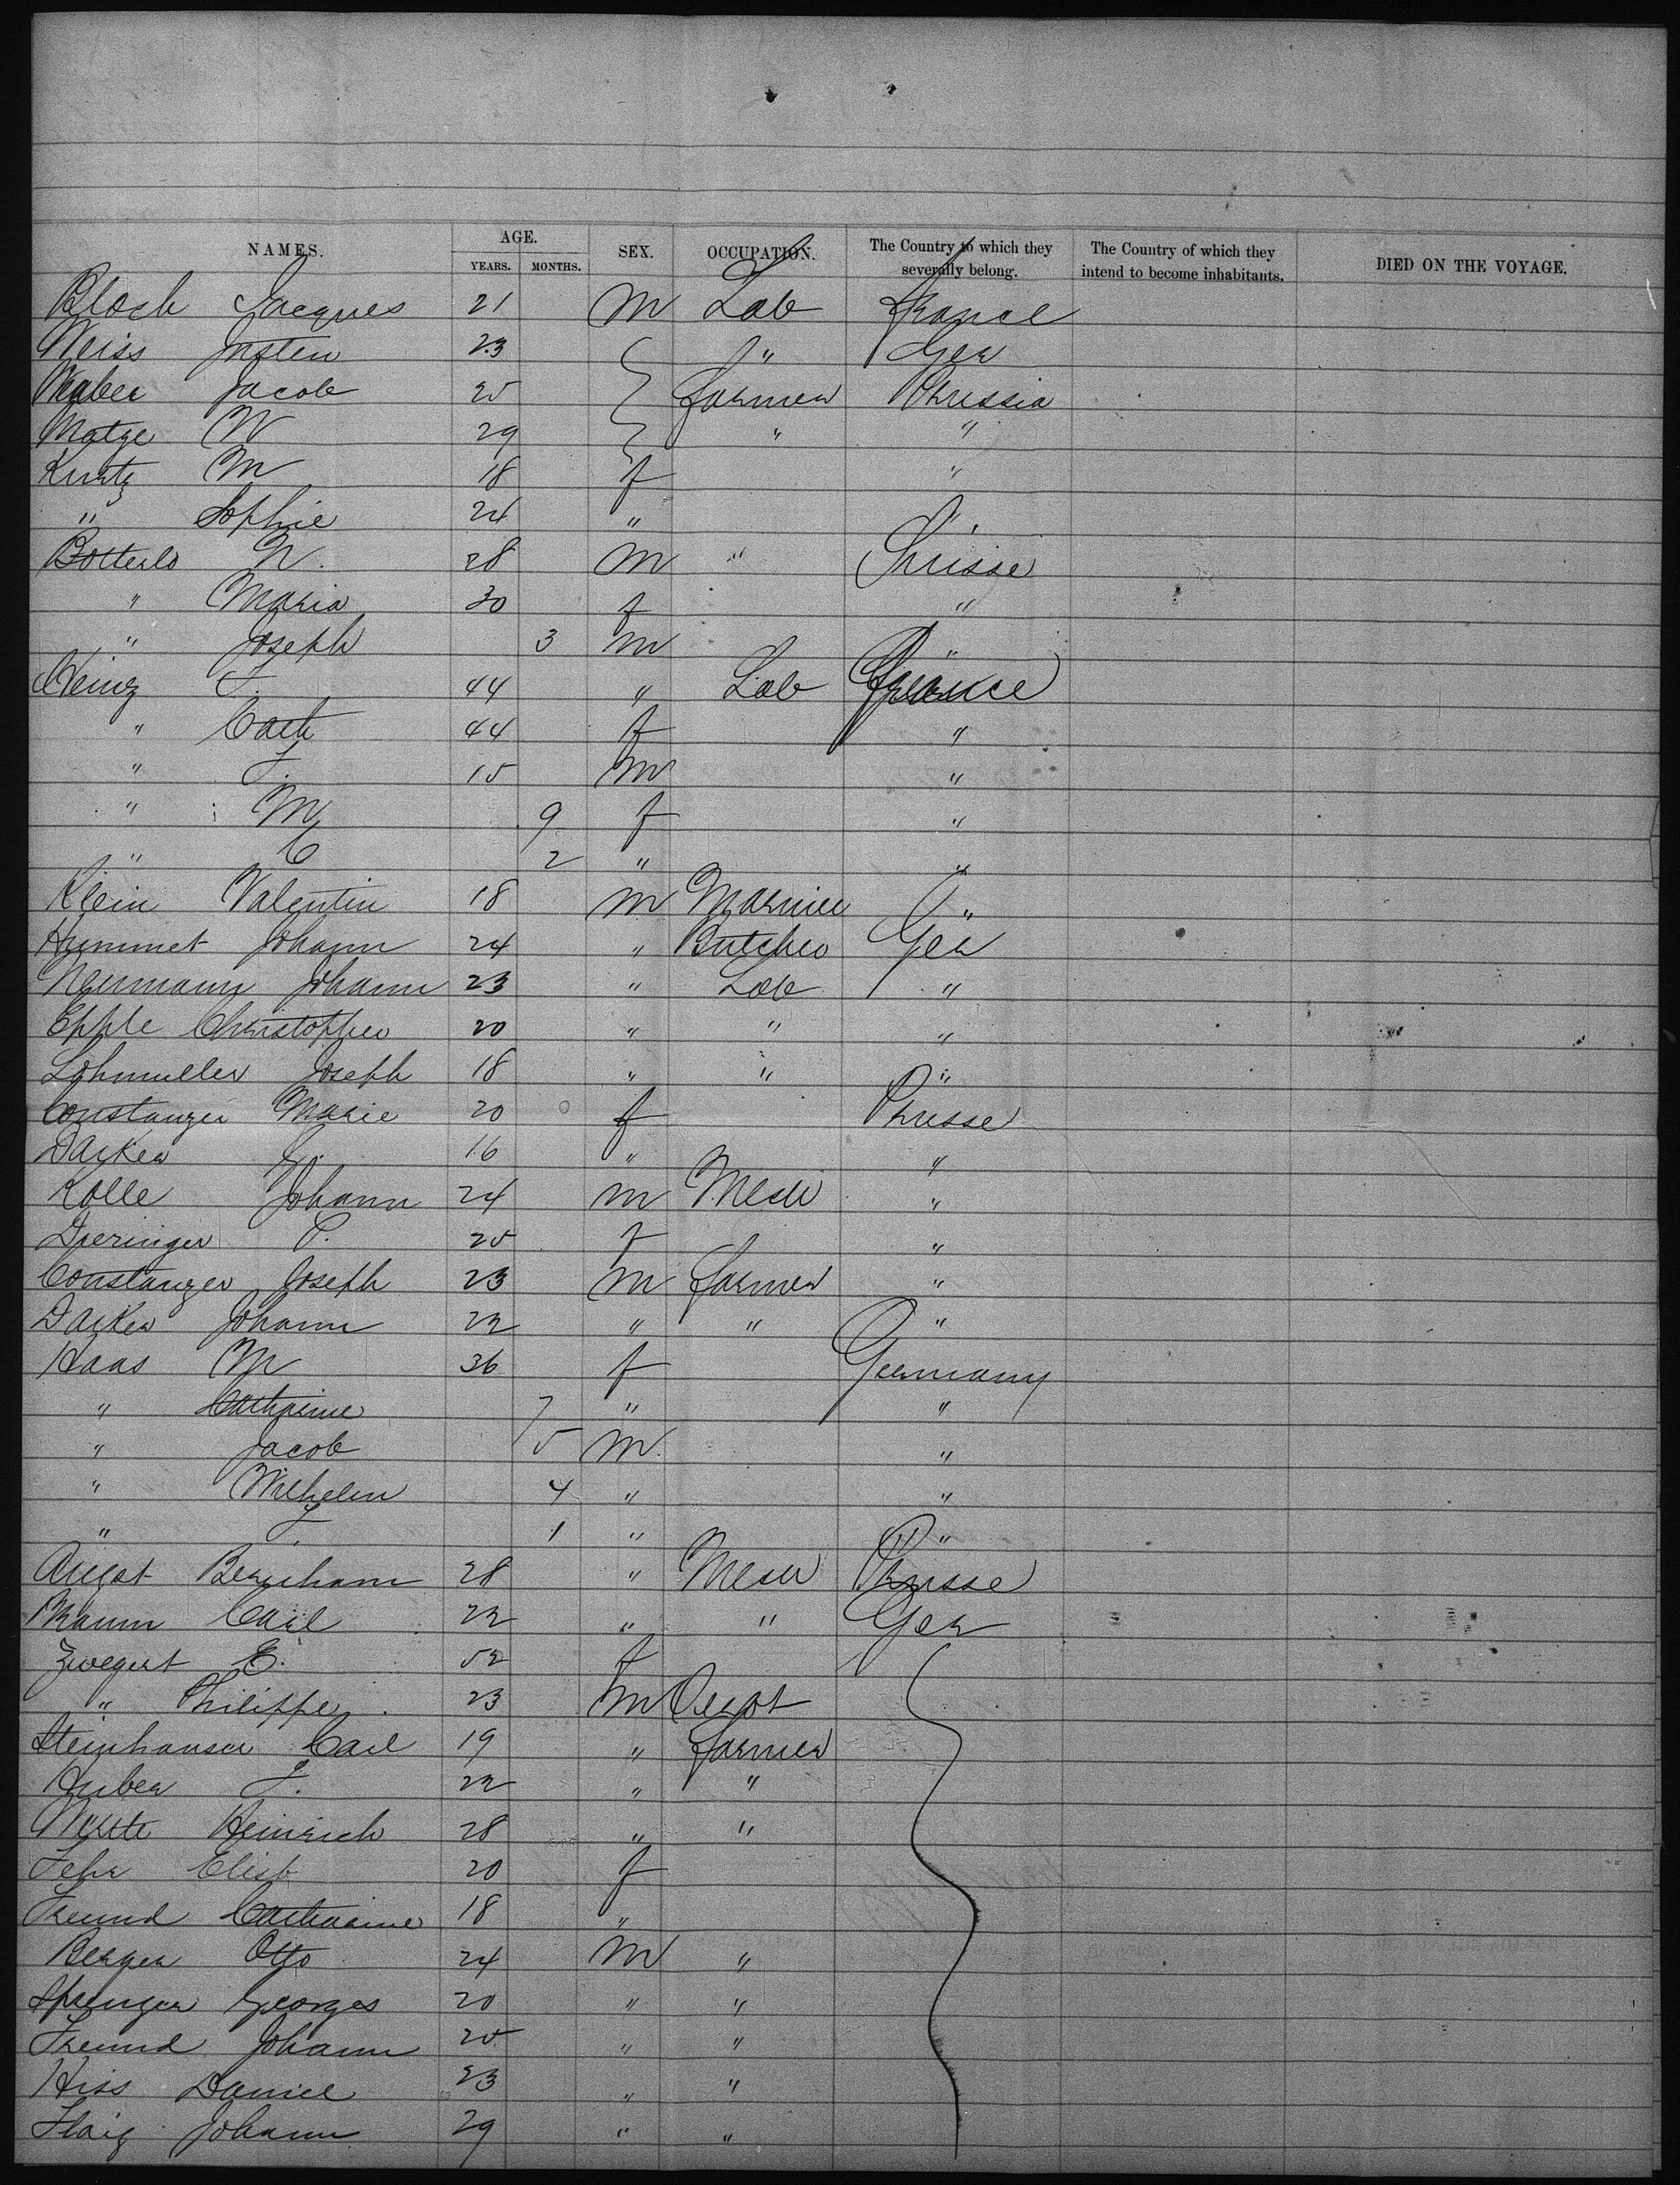 NAMES. AGE. SEX. OCCUPATION. The Country to which they severally belong. The Country of which they intend to become inhabitants. DIED ON THE VOYAGE.
YEARS. MONTHS.
Bloch Jacques 21 M Lab France
Weiss 23 " Ger
Weber Jacob 25 farmer Prussia
Matge W 29 " "
Kurtz M 18 f "
" Sophie 24 " "
N. 28 M " Prusse
" Maria 30 f "
" Joseph 3 M "
F. 44 " Lab France
" Cath 44 f "
" F. 15 M "
" M 9 f "
" C 2 " "
Klein Valentin 18 M "
Hummet Johann 24 " Butcher Ger
Neumann Johann 23 " Lab "
Epple Christopher 20 " " "
Lohmuller Joseph 18 " " "
Constanzer Marie 20 f Prusse
Darker 16 " "
Kolle Johann 24 M "
P. 25 f "
Constanzer Joseph 23 M farmer "
Darker Johann 22 " " "
Haas M 36 f Germany
" Catharine 7 " "
" Jacob 5 M "
" Wilhelm 4 " "
" F. 1 " "
28 " Prusse
Carl 22 " " Ger
E. 52 f
" Philippe 23 M
Steinhauser Carl 19 " farmer
Huber F. 22 " "
Heinrich 28 " "
Fehr Elisb 20 f
Freund Catharine 18 "
Berger Otto 24 M "
Sprenger Georges 20 " "
Freund Johann 25 " "
Hiss Daniel 23 " "
Flaig Johann 29 " "